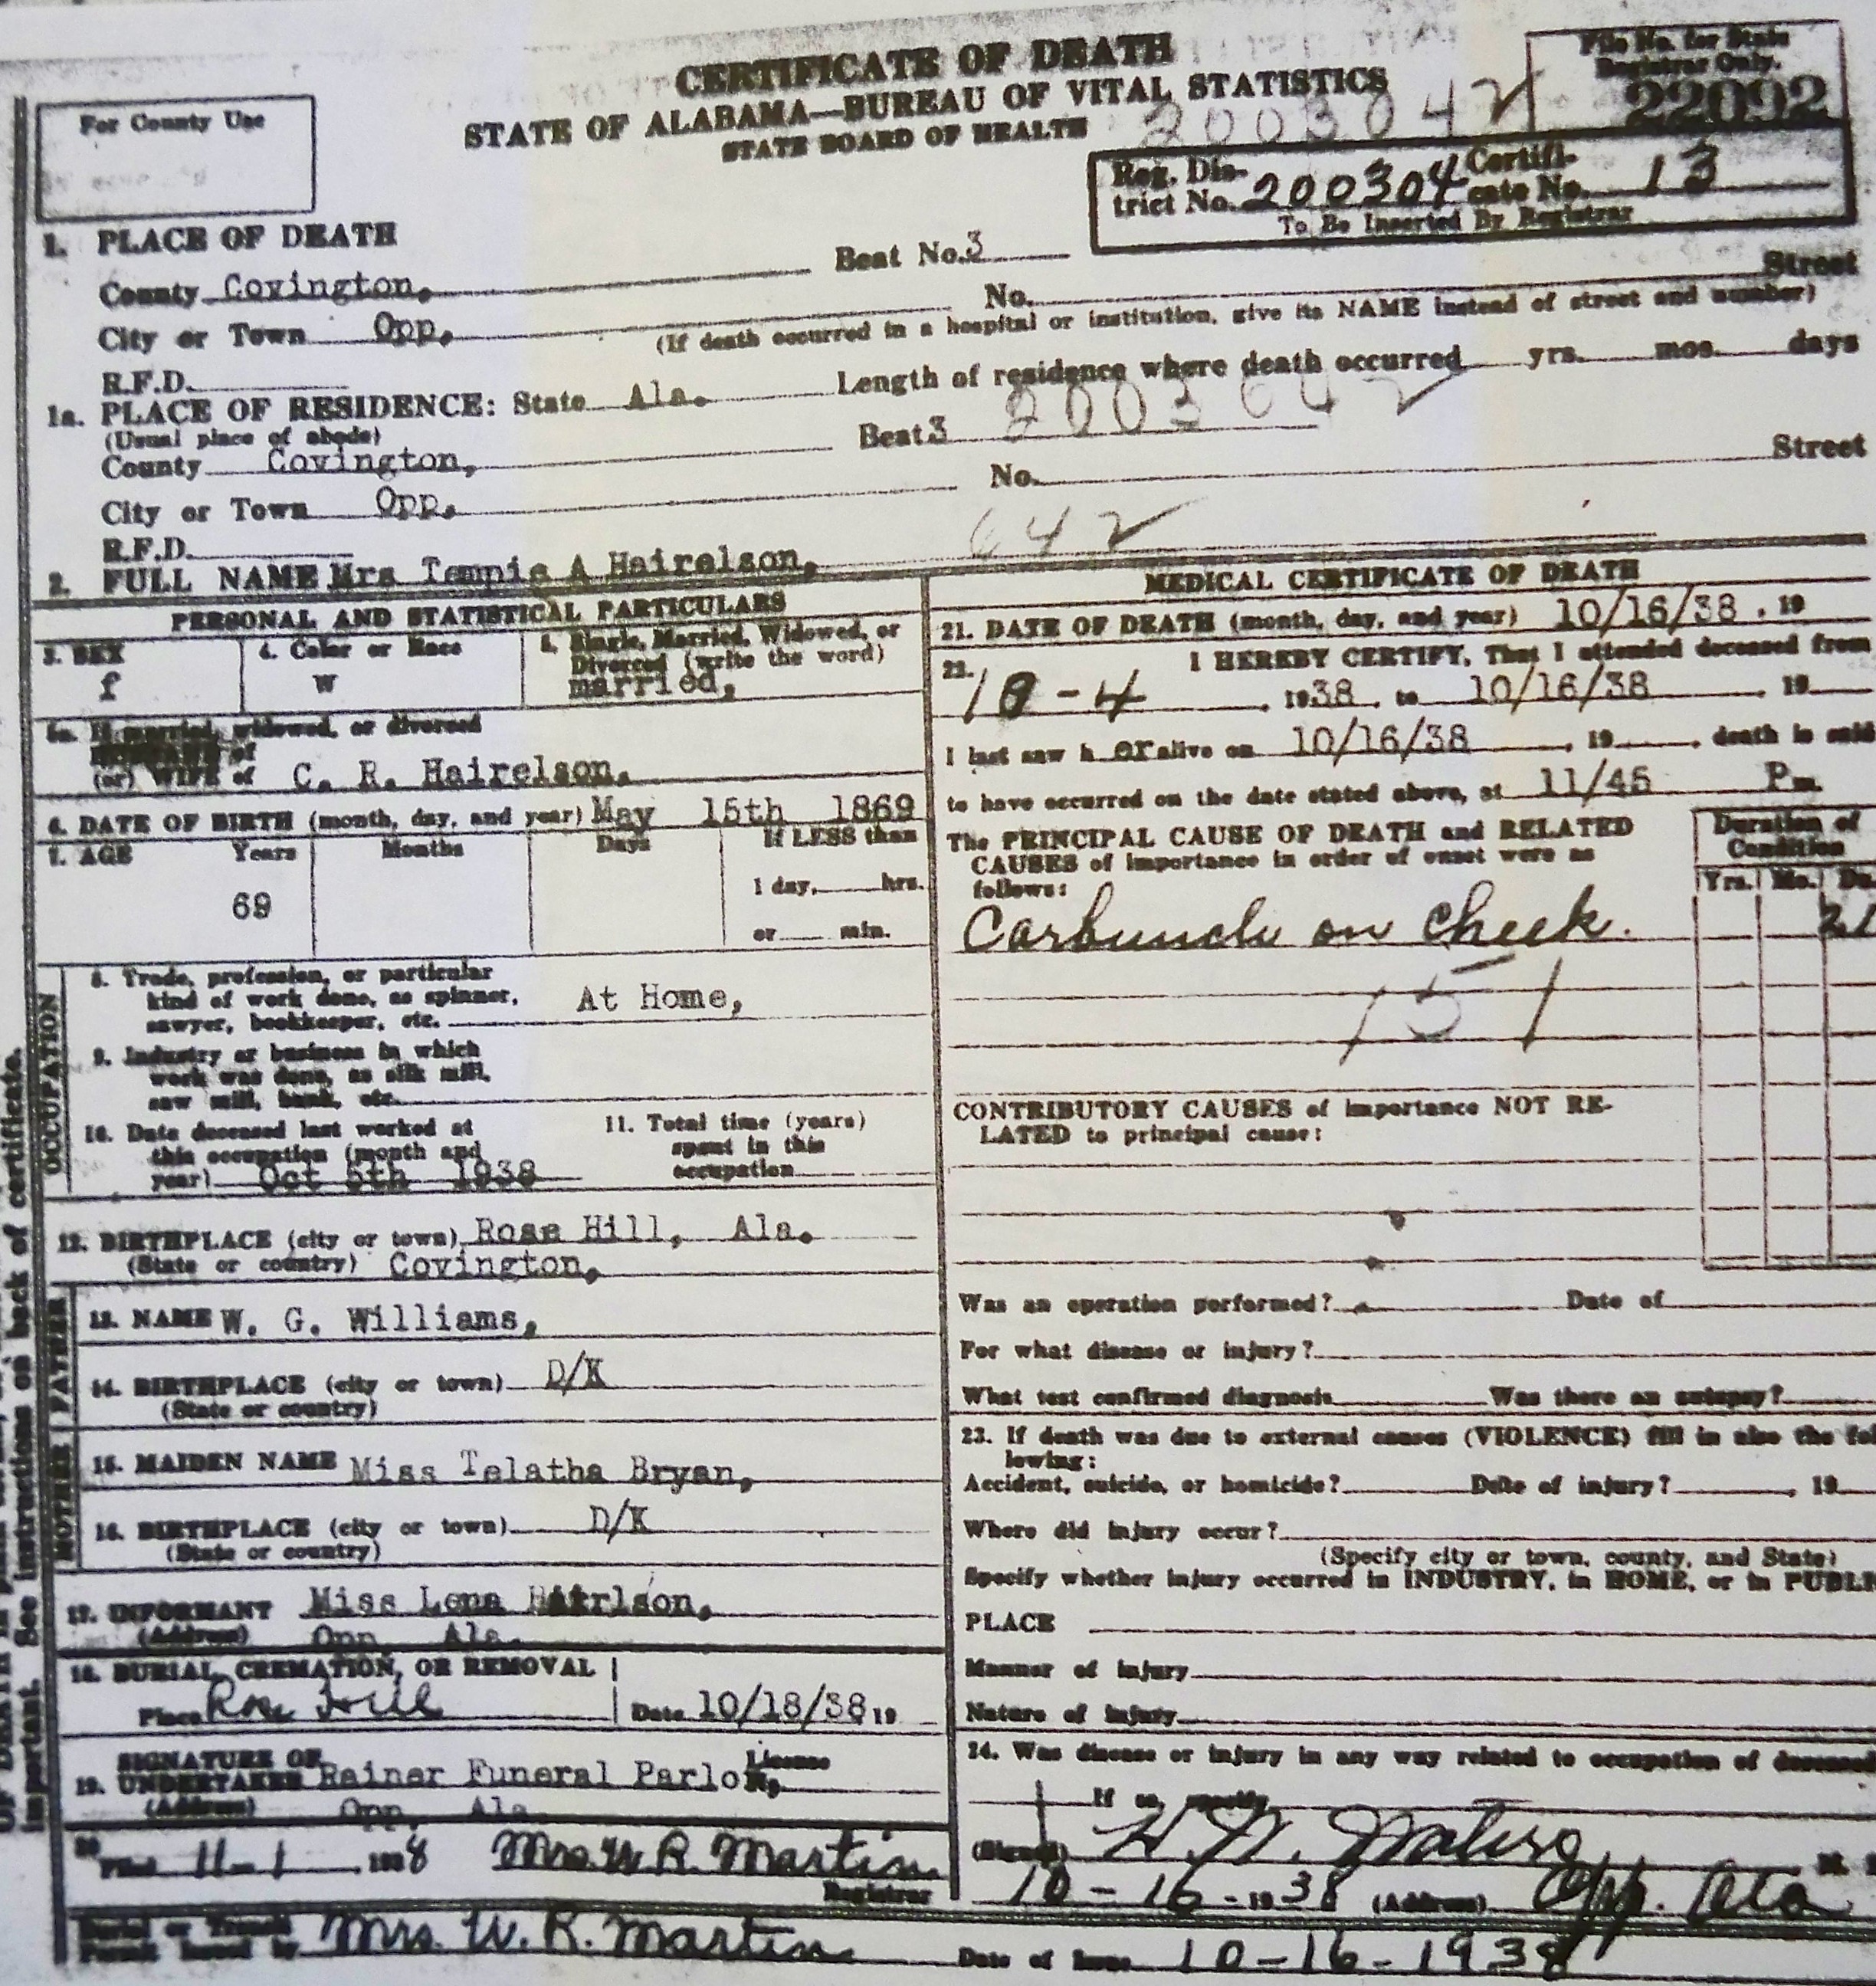 CERTIFICATE OF DEATH
STATE OF ALABAMA—BUREAU OF VITAL STATISTICS
STATE BOARD OF HEALTH
200304 2
File No. for State
Registrar Only.
22092
For County Use
Reg. Dis- Certifi-
trict No. 200304 cate No. 13
To Be Inserted By Registrar
1. PLACE OF DEATH
County Covington, Beat No. 3
City or Town Opp, No. Street
(If death occurred in a hospital or institution, give its NAME instead of street and number)
R.F.D. Length of residence where death occurred yrs. mos. days
1a. PLACE OF RESIDENCE: State Ala.
(Usual place of abode)
County Covington, Beat 3
City or Town Opp, No. Street
R.F.D.
642
2. FULL NAME Mrs Tempie A Hairelson,
PERSONAL AND STATISTICAL PARTICULARS
3. SEX
f
4. Color or Race
w
5. Single, Married, Widowed, or
Divorced (write the word)
married,
5a. If married, widowed, or divorced
of
(or) WIFE of C. R. Hairelson,
6. DATE OF BIRTH (month, day, and year) May 15th 1869
7. AGE Years Months Days If LESS than
69
1 day, hrs.
or min.
OCCUPATION
8. Trade, profession, or particular
kind of work done, as spinner,
sawyer, bookkeeper, etc. At Home,
9. Industry or business in which
work was done, as silk mill,
saw mill, bank, etc.
10. Date deceased last worked at
this occupation (month and
year) Oct 5th 1938
11. Total time (years)
spent in this
occupation
12. BIRTHPLACE (city or town) Rose Hill, Ala.
(State or country) Covington,
FATHER
13. NAME W. G. Williams,
14. BIRTHPLACE (city or town) D/K
(State or country)
MOTHER
15. MAIDEN NAME Miss Telatha Bryan,
16. BIRTHPLACE (city or town) D/K
(State or country)
17. INFORMANT Miss Lena Hairlson,
(Address) Opp Ala.
18. BURIAL, CREMATION, OR REMOVAL
Place Rose Hill Date 10/18/38 19
19. SIGNATURE OF UNDERTAKER Rainer Funeral Parlor, License
(Address) Opp, Ala
20. Filed 11-1 1938 Mrs. W R. Martin
Registrar
MEDICAL CERTIFICATE OF DEATH
21. DATE OF DEATH (month, day, and year) 10/16/38, 19
22. I HEREBY CERTIFY, That I attended deceased from
10-4, 1938, to 10/16/38, 19
I last saw h er alive on 10/16/38, 19, death is said
to have occurred on the date stated above, at 11/45 Pm.
The PRINCIPAL CAUSE OF DEATH and RELATED
CAUSES of importance in order of onset were as
follows:
Duration of
Condition
Yrs. Mo. Da.
Carbuncle on Cheek. 21
151
CONTRIBUTORY CAUSES of importance NOT RE-
LATED to principal cause:
Was an operation performed? Date of
For what disease or injury?
What test confirmed diagnosis Was there an autopsy?
23. If death was due to external causes (VIOLENCE) fill in also the fol
lowing:
Accident, suicide, or homicide? Date of injury?, 19
Where did injury occur?
(Specify city or town, county, and State)
Specify whether injury occurred in INDUSTRY, in HOME, or in PUBLI
PLACE
Manner of injury
Nature of injury
24. Was disease or injury in any way related to occupation of deceased
If so, specify
(Signed) M.
10-16-1938 (Address) Opp. Ala
Burial or Transit
Permit Issued by Mrs. W. R. Martin Date of Issue 10-16-1938
important. See instructions on back of certificate.